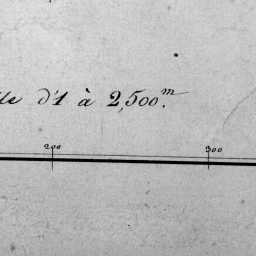 lle d'1 à 2,500.m
200 300